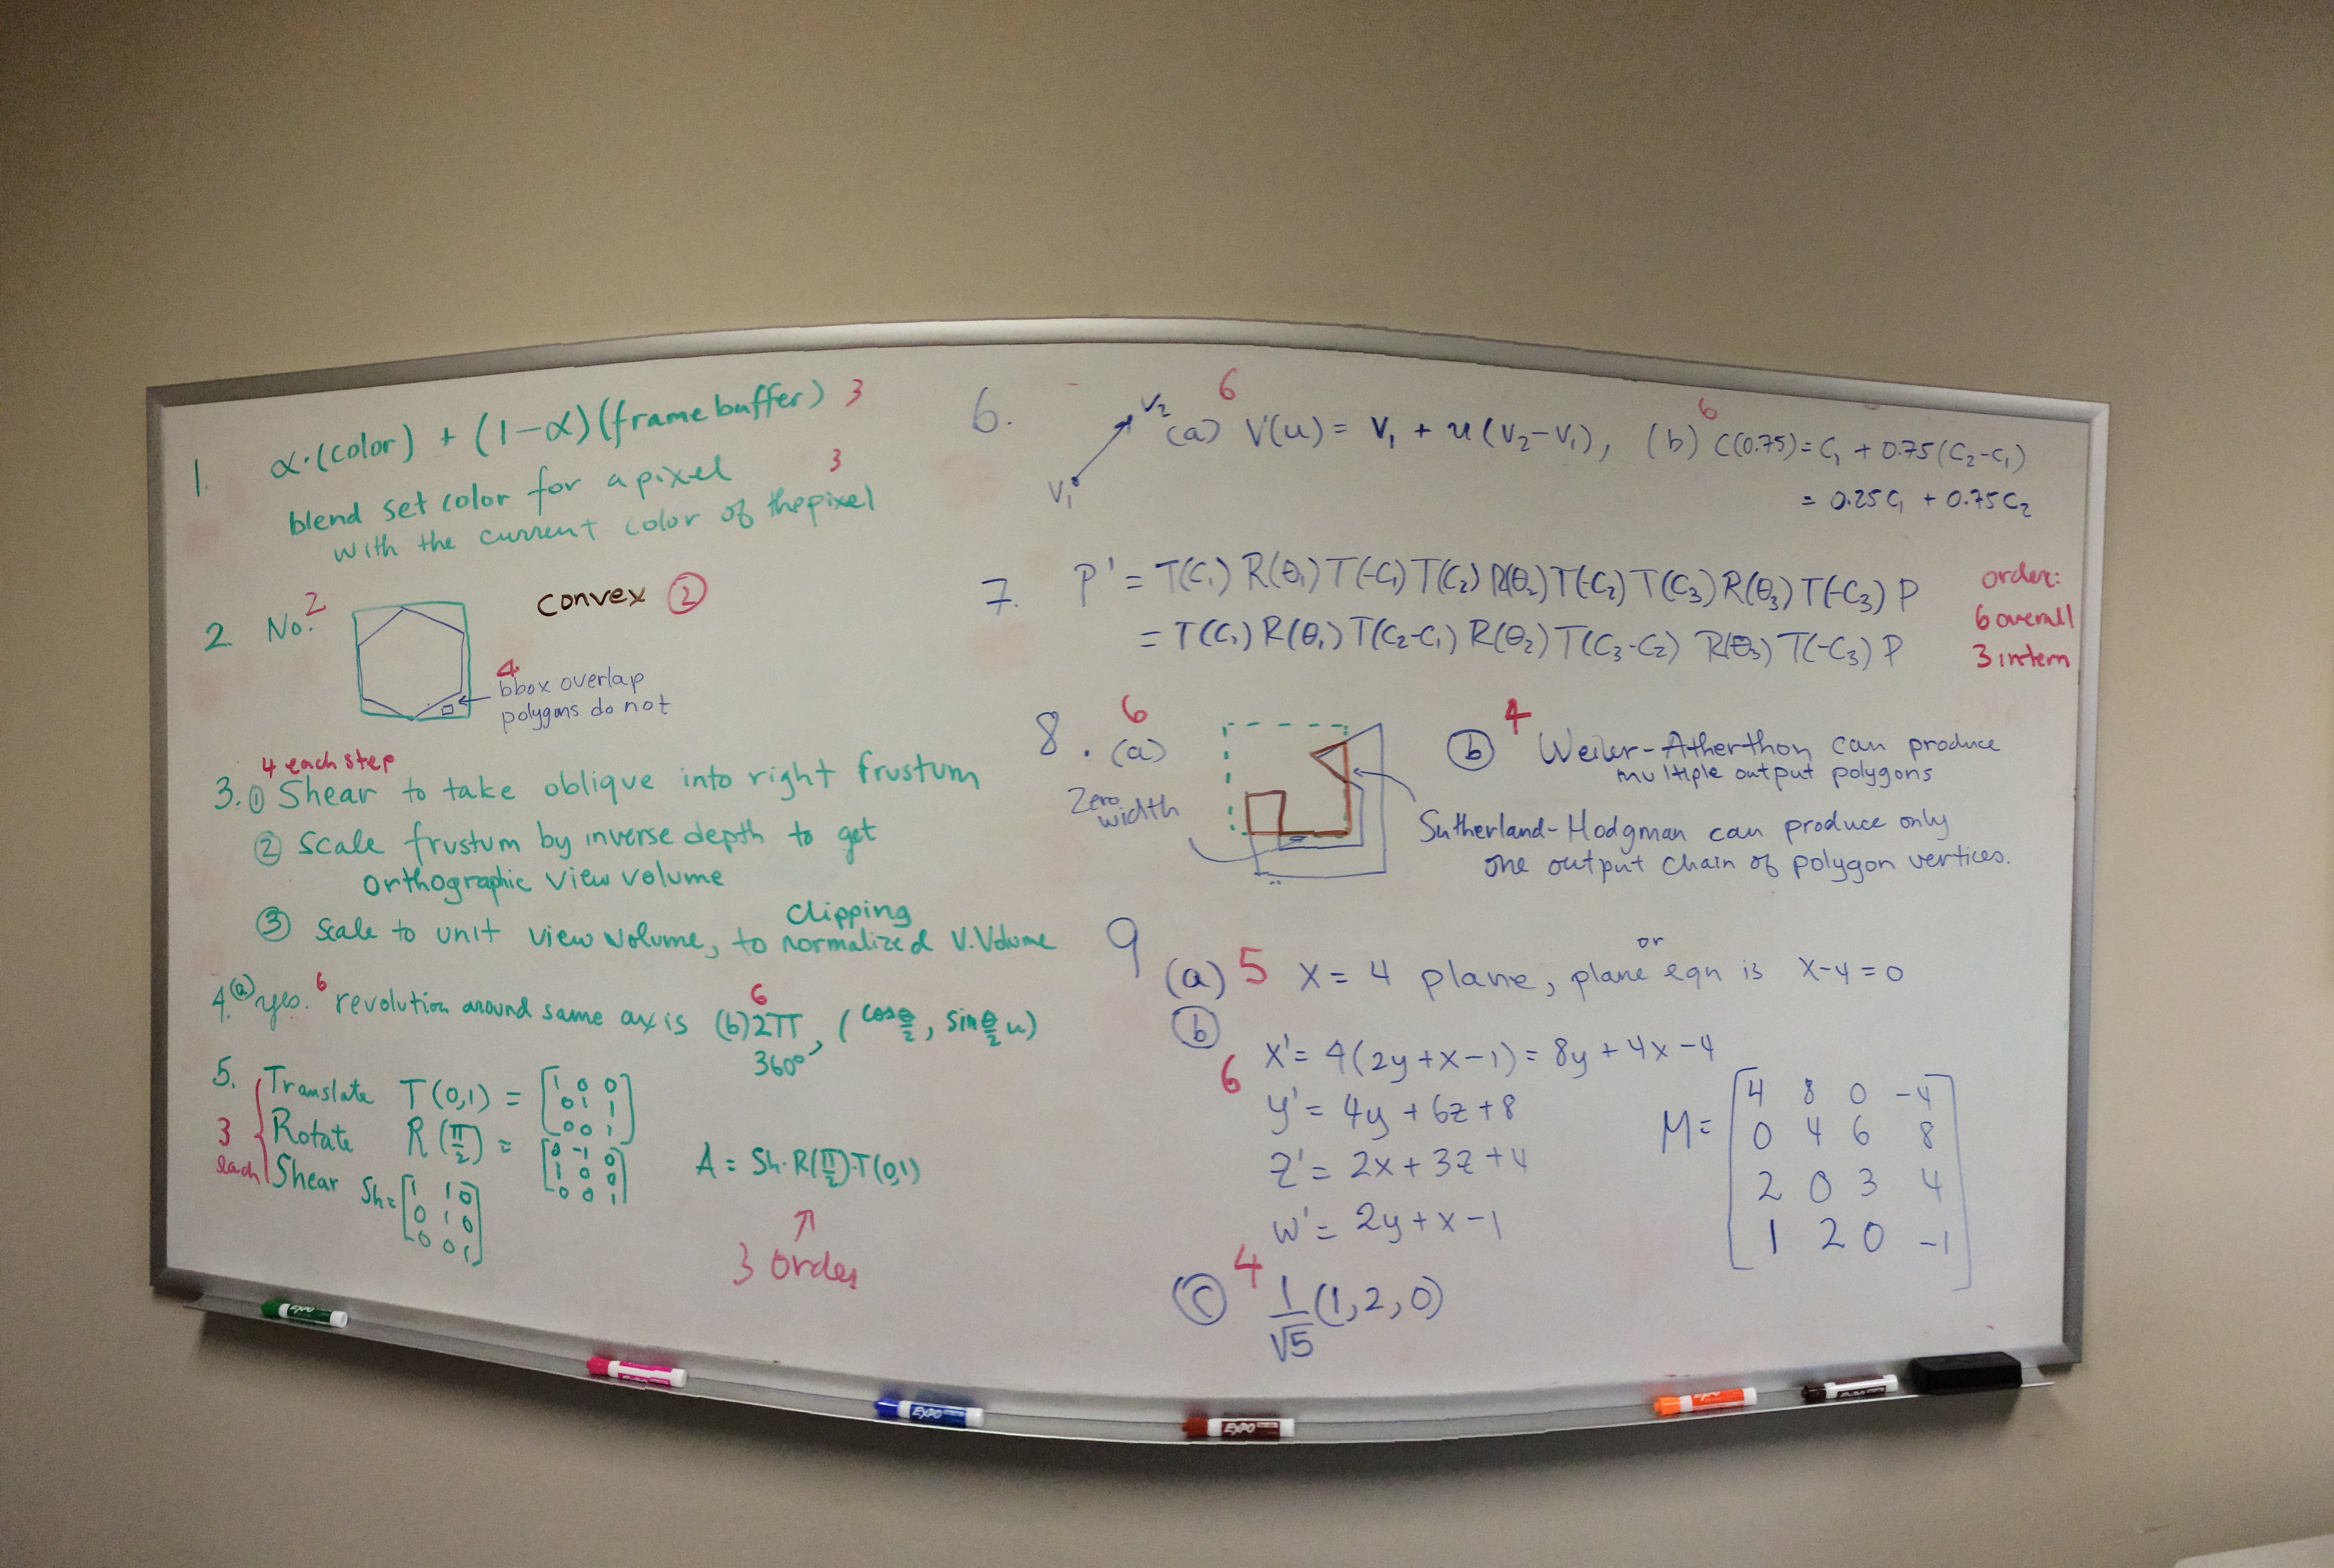 1. α·(color) + (1-α)(frame buffer) 3
blend set color for a pixel 3
with the current color of the pixel
2 No. 2
convex 2
4
bbox overlap
polygons do not
4 each step
3. ① Shear to take oblique into right frustum
② scale frustum by inverse depth to get
orthographic view volume
clipping
③ scale to unit view volume, to normalized V.Volume
4. (a) yes. 6 revolution around same axis (b) 6 2π, (cos θ/2, sin θ/2 u)
360°
5. Translate T(0,1) = [1 0 0
0 1 1
0 0 1]
Rotate R(π/2) = [0 -1 0
1 0 0
0 0 1]
3 each
Shear Sh = [1 1 0
0 1 0
0 0 1]
A = Sh·R(π/2)·T(0,1)
↑
3 order
6. V₁ V₂ (a) 6 V(u) = V₁ + u(V₂-V₁), (b) 6 C(0.75) = C₁ + 0.75(C₂-C₁)
= 0.25C₁ + 0.75C₂
7. P' = T(C₁) R(θ₁) T(-C₁) T(C₂) R(θ₂) T(-C₂) T(C₃) R(θ₃) T(-C₃) P
= T(C₁) R(θ₁) T(C₂-C₁) R(θ₂) T(C₃-C₂) R(θ₃) T(-C₃) P
order:
6 overall
3 intern
8. (a) 6
Zero width
(b) 4 Weiler-Atherthon can produce
multiple output polygons
Sutherland-Hodgman can produce only
one output chain of polygon vertices.
9
(a) 5 x = 4 plane, or plane eqn is x-4=0
(b)
6
x' = 4(2y+x-1) = 8y+4x-4
y' = 4y+6z+8
z' = 2x+3z+4
w' = 2y+x-1
M = [4 8 0 -4
0 4 6 8
2 0 3 4
1 2 0 -1]
(c) 4 1/√5 (1,2,0)
EXPO
EXPO
EXPO
EXPO